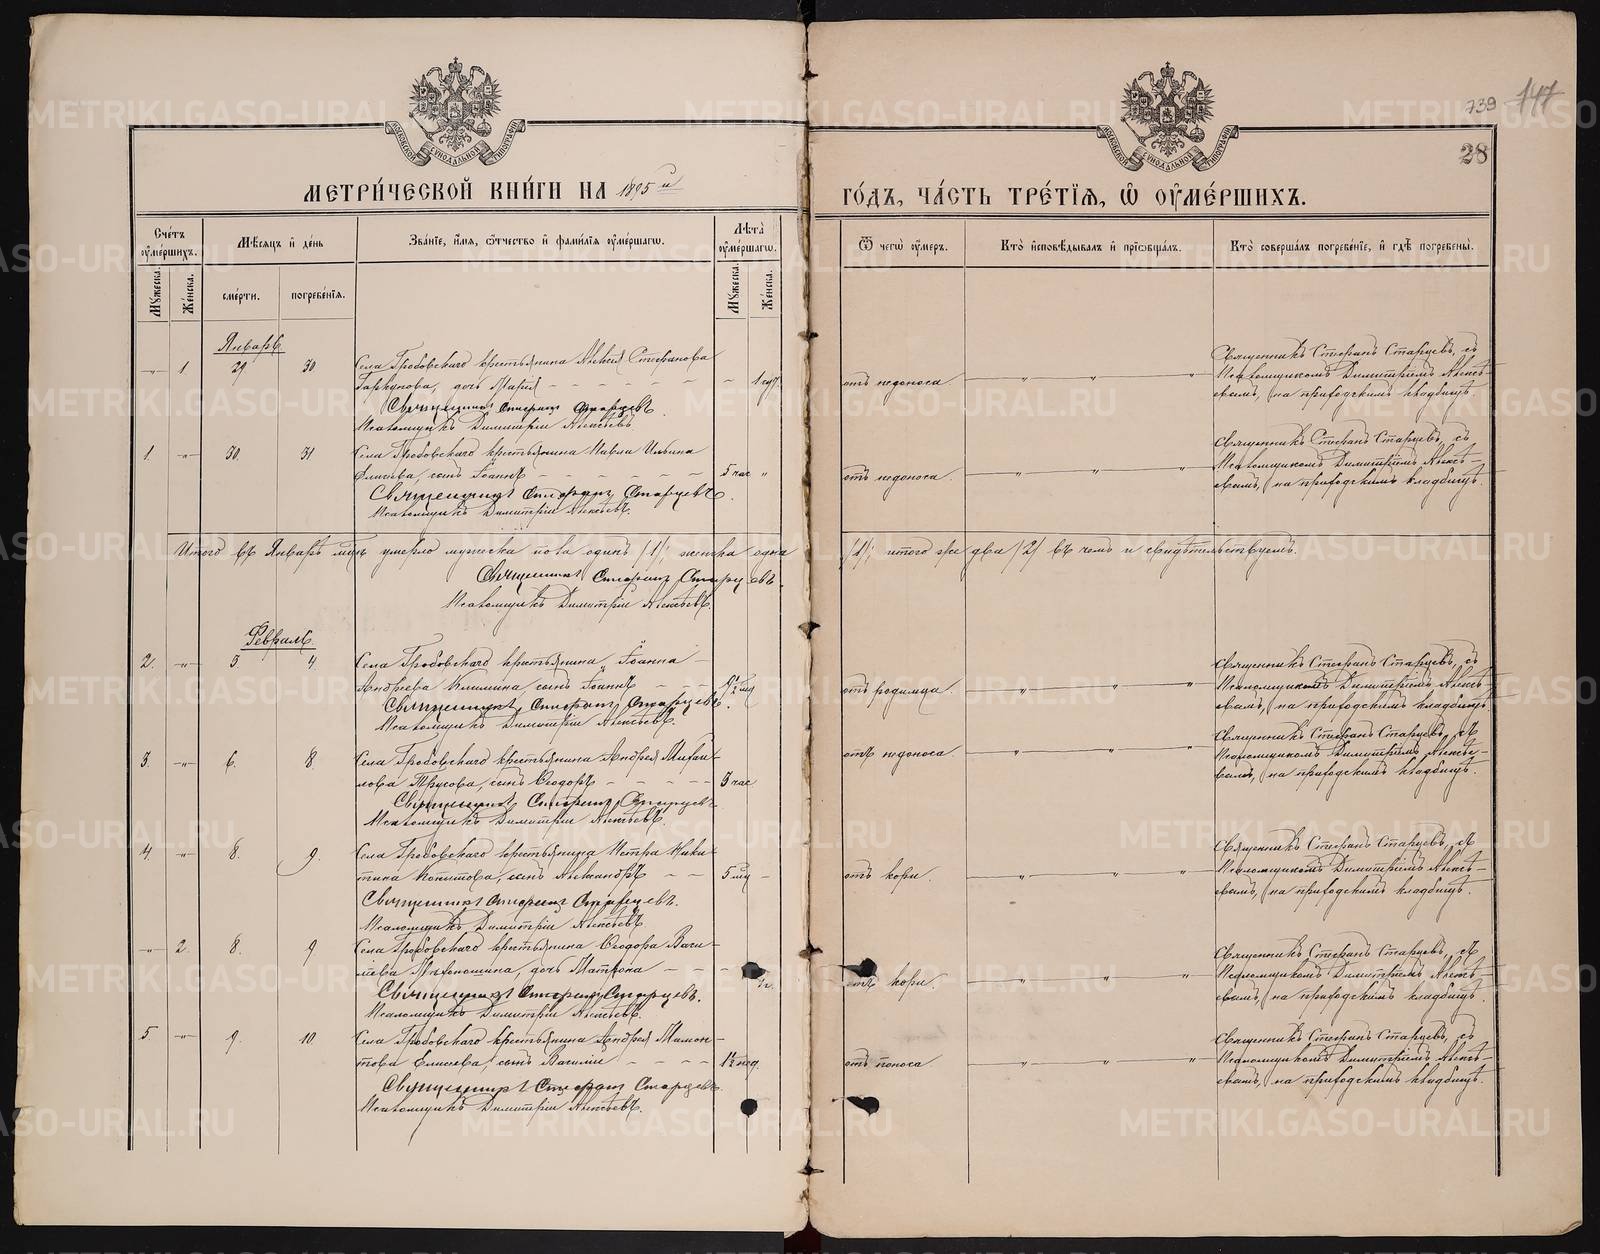 739 147
28
МЕТРИ́ЧЕСКОЙ КНИ́ГИ НА 1895 й ГО́ДЪ, ЧА́СТЬ ТРЕ́ТІѦ, Ѡ҆ ОУ҆МЕ́РШИХЪ.
МОСКОВСКОЙ СѴНОДАЛЬНОЙ ТИПОГРАФІИ
МОСКОВСКОЙ СѴНОДАЛЬНОЙ ТИПОГРАФІИ
Сче́тъ оу҆ме́ршихъ.
Мѣ́сяцъ и҆ де́нь
Зва́нїе, и҆́мя, ѻ҆́тчество и҆ фами́лїя оу҆ме́ршагѡ.
Лѣта̀ оу҆ме́ршагѡ.
Ѿ чегѡ̀ оу҆́меръ.
Кто̀ и҆сповѣ́дывалъ и҆ прїѡбща́лъ.
Кто̀ соверша́лъ погребе́нїе, и҆ гдѣ̀ погребены̀.
Мꙋ́жеска.
Же́нска.
сме́рти.
погребе́нїя.
Мꙋ́жеска.
Же́нска.
Январь
-"- 1 29 30 Села Гробовскаго крестьянина Алексія Стефанова
Горкунова, дочь Марія - - - - - - -
Священникъ Стефанъ Старцевъ.
Псаломщикъ Димитрій Алексѣевъ.
отъ недоноса " "
Священникъ Стефанъ Старцевъ, съ
Псаломщикомъ Димитріемъ Алексѣ-
евымъ, на приходскомъ кладбищѣ.
1. -"- 30. 31 Села Гробовскаго крестьянина Павла Ильина
сынъ Іоаннъ - - - 5 час "
Священникъ Стефанъ Старцевъ.
Псаломщикъ Димитрій Алексѣевъ.
отъ недоноса. " " "
Священникъ Стефанъ Старцевъ, съ
Псаломщикомъ Димитріемъ Алексѣ-
евымъ, на приходскомъ кладбищѣ.
Итого въ Январѣ мцѣ умерло мужеска пола одинъ /1/; женска одна /1/; итого же два /2/ въ чемъ и свидѣтельствуемъ.
Священникъ Стефанъ Старцевъ.
Псаломщикъ Димитрій Алексѣевъ.
Февраль
2. -"- 3. 4 Села Гробовскаго крестьянина Іоанна
Андреева Климина, сынъ Іоаннъ - - -
Священникъ Стефанъ Старцевъ.
Псаломщикъ Димитрій Алексѣевъ.
отъ родимца. " " "
Священникъ Стефанъ Старцевъ, съ
Псаломщикомъ Димитріемъ Алексѣ-
евымъ, на приходскомъ кладбищѣ.
3. -"- 6. 8. Села Гробовскаго крестьянина Андрея Михаи-
лова Трусова, сынъ Ѳеодоръ - - - - - 3 час
Священникъ Стефанъ Старцевъ
Псаломщикъ Димитрій Алексѣевъ.
отъ недоноса. " " "
Священникъ Стефанъ Старцевъ, съ
Псаломщикомъ Димитріемъ Алексѣе-
вымъ, на приходскомъ кладбищѣ.
4. -"- 8. 9. Села Гробовскаго крестьянина Петра Ники-
тина Копытова, сынъ Александръ - - 5 мц -
Священникъ Стефанъ Старцевъ.
Псаломщикъ Димитрій Алексѣевъ.
отъ кори. " " "
Священникъ Стефанъ Старцевъ, съ
Псаломщикомъ Димитріемъ Алексѣ-
евымъ, на приходскомъ кладбищѣ.
-"- 2. 8. 9 Села Гробовскаго крестьянина Ѳеодора Васи-
ліева дочь Матрона - -
Священникъ Стефанъ Старцевъ.
Псаломщикъ Димитрій Алексѣевъ.
отъ кори. " " "
Священникъ Стефанъ Старцевъ, съ
Псаломщикомъ Димитріемъ Алексѣ-
евымъ, на приходскомъ кладбищѣ.
5 -"- 9. 10. Села Гробовскаго крестьянина Андрея Мамон-
това Елисѣева, сынъ Василій - - - - 1½ нед.
Священникъ Стефанъ Старцевъ.
Псаломщикъ Димитрій Алексѣевъ.
отъ поноса " " "
Священникъ Стефанъ Старцевъ, съ
Псаломщикомъ Димитріемъ Алексѣ-
евымъ, на приходскомъ кладбищѣ.
METRIKI.GASO-URAL.RU